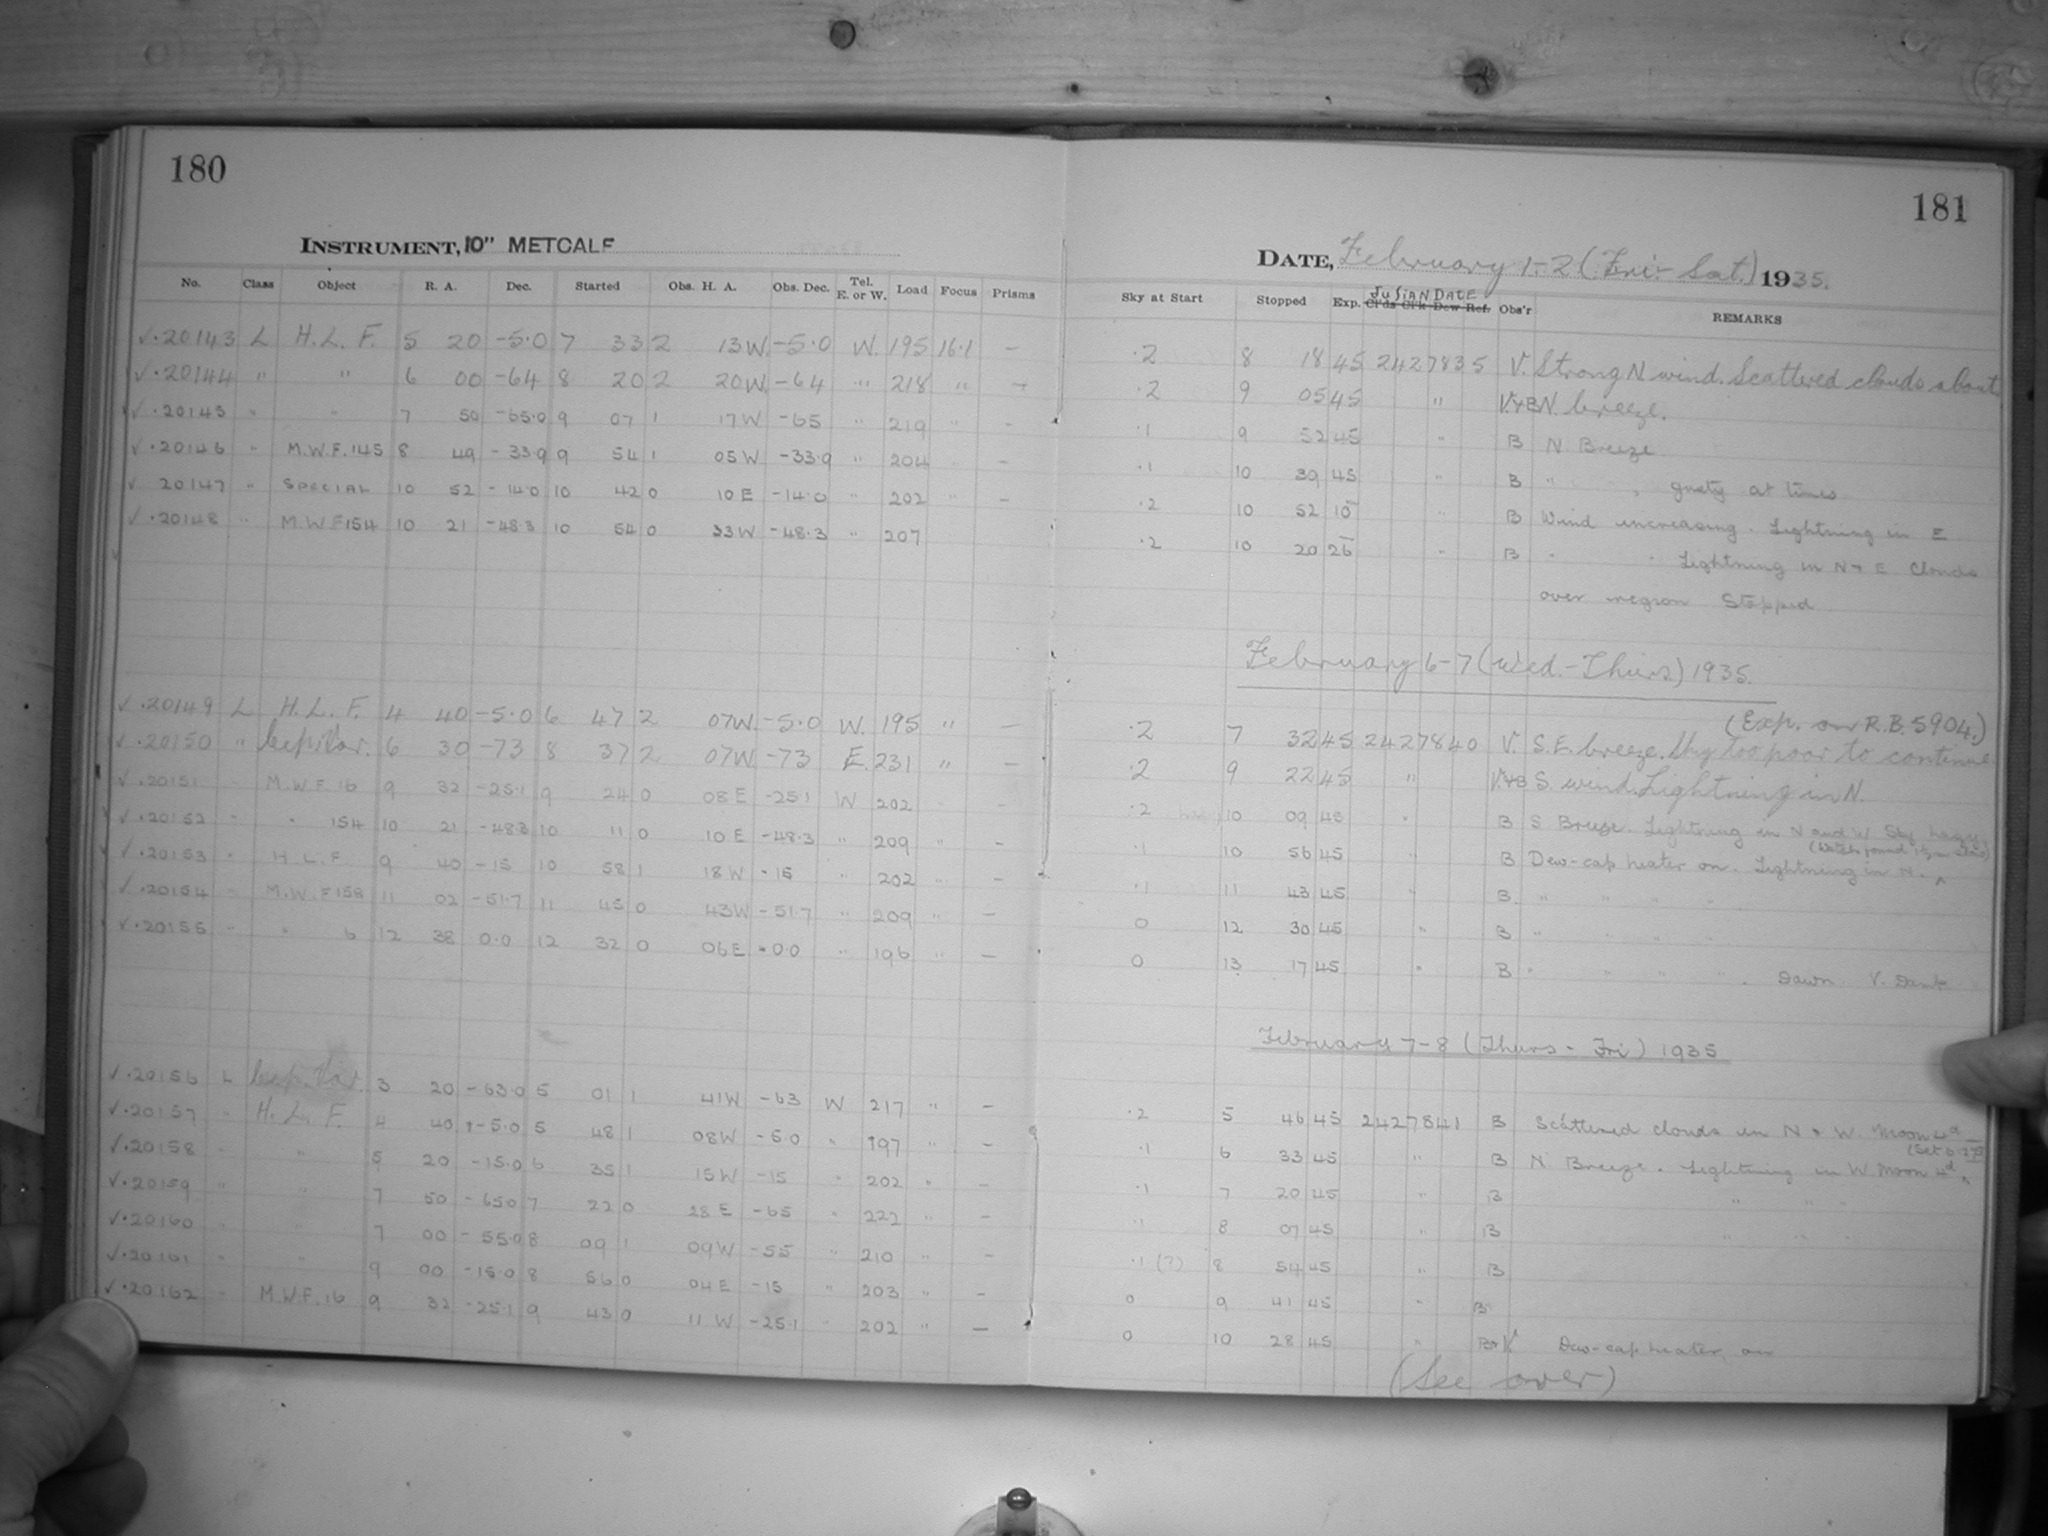 180
INSTRUMENT, 10" METCALF
No. Class Object R. A. Dec. Started Obs. H. A. Obs. Dec. Tel. E. or W. Load Focus Prisms
✓.20143 L H.L.F. 5 20 -5.0 7 33 2 13W. -5.0 W. 195 16.1 —
✓.20144 " " 6 00 -64 8 20 2 20W. -64 " 218 " —
✓.20145 " " 7 50 -65.0 9 07 1 17W -65 " 219 " —
✓.20146 " M.W.F.145 8 49 -33.9 9 54 1 05W -33.9 " 204 —
✓ 20147 " SPECIAL 10 52 -14.0 10 42 0 10E -14.0 " 202 " —
✓.20148 " M.W.F154 10 21 -48.3 10 54 0 33W -48.3 " 207
✓.20149 L H.L.F. 4 40 -5.0 6 47 2 07W. -5.0 W. 195 " —
✓.20150 " 6 30 -73 8 37 2 07W. -73 E. 231 " —
✓.20151 M.W.F.16 9 32 -25.1 9 24 0 08E -25.1 W 202 —
✓.20152 " 154 10 21 -48.3 10 11 0 10E -48.3 " 209 —
✓.20153 " H.L.F 9 40 -15 10 58 1 18W -15 " 202 " —
✓.20154 M.W.F158 11 02 -51.7 11 45 0 43W -51.7 " 209 " —
✓.20155 " " 6 12 38 0.0 12 32 0 06E 0.0 " 196 " —
✓.20156 L 3 20 -63.0 5 01 1 41W -63 W 217 " —
✓.20157 " H.L.F. 4 40 -5.0 5 48 1 08W -5.0 " 197 " —
✓.20158 " " 5 20 -15.0 6 35 1 15W -15 " 202 " —
✓.20159 " " 7 50 -65.0 7 22 0 28E -65 " 222 " —
✓.20160 " " 7 00 -55.0 8 09 1 09W -55 " 210 " —
✓.20161 " " 9 00 -15.0 8 56 0 04E -15 " 203 " —
✓.20162 " M.W.F.16 9 32 -25.1 9 43 0 11W -25.1 " 202 " —
181
DATE, February 1-2 (Fri.-Sat.) 1935.
JULIAN DATE
Sky at Start Stopped Exp. Cl'ds Cl'k Dew Ref. Obs'r REMARKS
.2 8 18 45 2427835 V. Strong N wind. Scattered clouds about
.2 9 05 45 " V.+B N. breeze.
.1 9 52 45 " B N Breeze
.1 10 39 45 " B " , gusty at times
.2 10 52 10 " B Wind increasing. Lightning in E
.2 10 20 26 " B " " Lightning in N + E Clouds
over region Stopped.
February 6-7 (Wed.-Thurs.) 1935.
(Exp. on R.B. 5904.)
.2 7 32 45 2427840 V. S.E. breeze. Sky too poor to continue
.2 9 22 45 " V.+B S. wind. Lightning in N.
.2 10 09 45 " B S Breeze. Lightning in N and W Sky hazy
.1 10 56 45 " B Dew-cap heater on. Lightning in N.
.1 11 43 45 " B. " " " "
0 12 30 45 " B " " " "
0 13 17 45 " B " " " " . Dawn. V. Dank
February 7-8 (Thurs - Fri) 1935
.2 5 46 45 2427841 B Scattered clouds in N + W. Moon 4d
.1 6 33 45 " B N Breeze. Lightning in W Moon 4d
.1 7 20 45 " B " " "
.1 8 07 45 " B " " "
.1 (?) 8 54 45 " B
0 9 41 45 " B
0 10 28 45 " B+V. Dew-cap heater on
(See over)